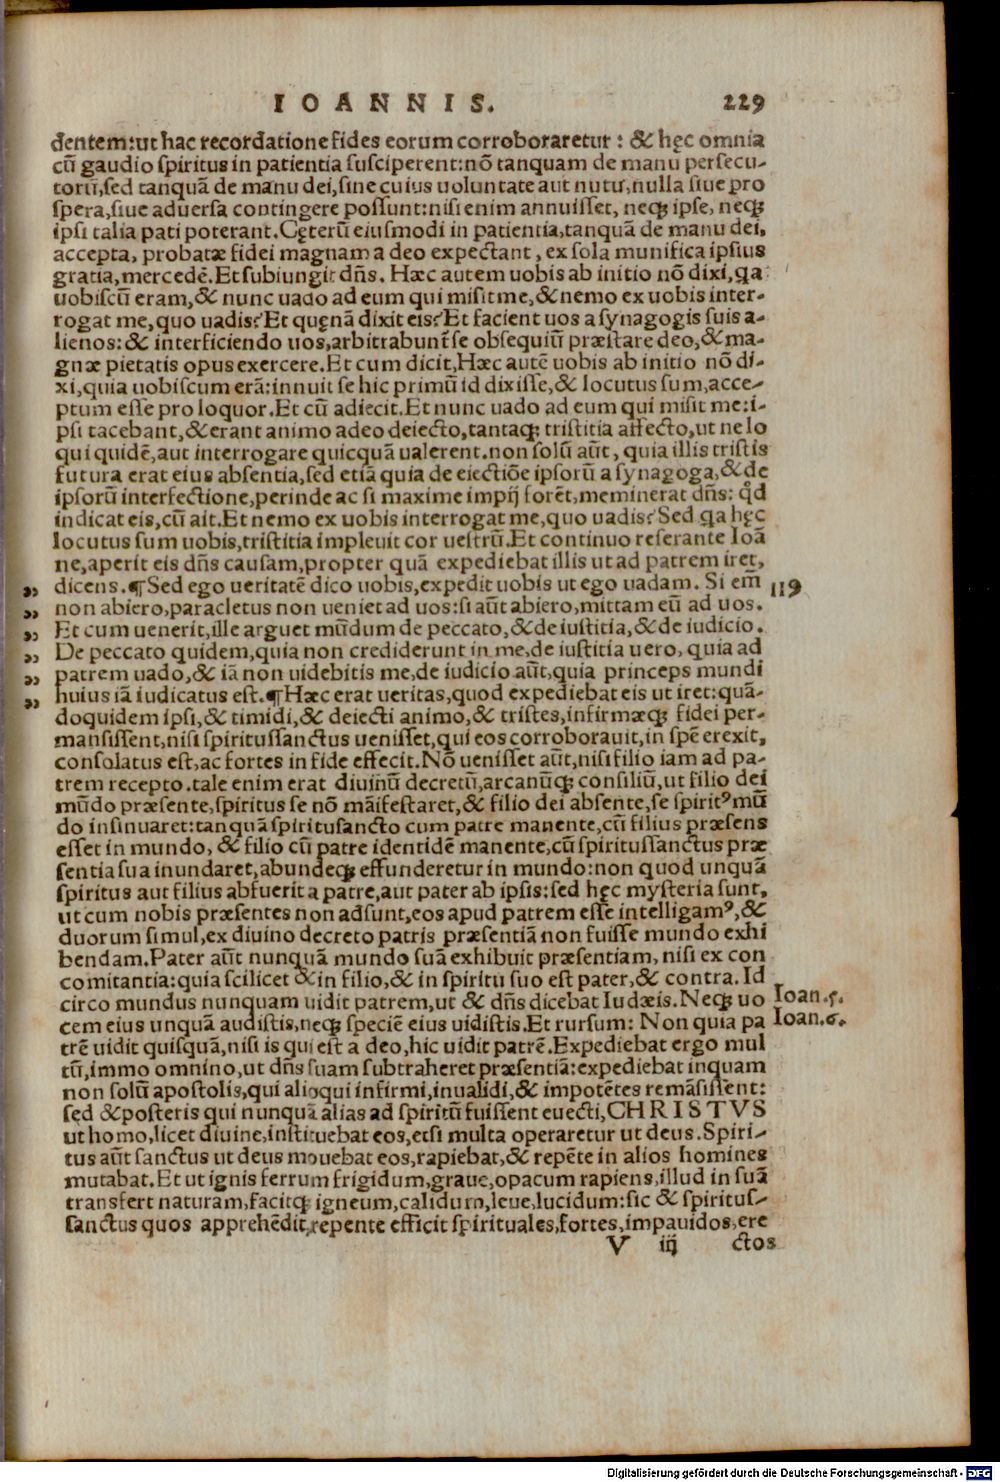 IOANNIS. 229
dentem:ut hac recordatione fides eorum corroboraretur : & hęc omnia
cū gaudio spiritus in patientia susciperent:nō tanquam de manu persecu-
torū,sed tanquā de manu dei,sine cuius uoluntate aut nutu,nulla siue pro
spera,siue aduersa contingere possunt:nisi enim annuisset, neqꝫ ipse, neqꝫ
ipsi talia pati poterant.Cęterū eiusmodi in patientia,tanquā de manu dei,
accepta, probatæ fidei magnam a deo expectant, ex sola munifica ipsius
gratia,mercedē.Et subiungit dñs. Hæc autem uobis ab initio nō dixi,ꝗa
uobiscū eram,& nunc uado ad eum qui misit me,& nemo ex uobis inter-
rogat me,quo uadis?Et quęnā dixit eis?Et facient uos a synagogis suis a-
lienos:& interficiendo uos,arbitrabunt se obsequiū præstare deo,& ma-
gnæ pietatis opus exercere.Et cum dicit,Hæc autē uobis ab initio nō di-
xi,quia uobiscum erā:innuit se hic primū id dixisse,& locutus sum,acce-
ptum esse pro loquor.Et cū adiecit.Et nunc uado ad eum qui misit me:i-
psi tacebant,& erant animo adeo deiecto,tantaqꝫ tristitia affecto,ut ne lo
qui quidē,aut interrogare quicquā ualerent.non solū aūt, quia illis tristis
futura erat eius absentia,sed etiā quia de eiectiōe ipsorū a synagoga,& de
ipsorū interfectione,perinde ac si maxime impij forēt,meminerat dñs: qd
indicat eis,cū ait.Et nemo ex uobis interrogat me,quo uadis?Sed ꝗa hęc
locutus sum uobis,tristitia impleuit cor uestrū.Et continuo reserante Ioā
ne,aperit eis dñs causam,propter quā expediebat illis ut ad patrem iret,
„ dicens.¶Sed ego ueritatē dico uobis,expedit uobis ut ego uadam. Si em̄ 119
„ non abiero,paracletus non ueniet ad uos:si aūt abiero,mittam eū ad uos.
„ Et cum uenerit,ille arguet mūdum de peccato,& de iustitia,& de iudicio.
„ De peccato quidem,quia non crediderunt in me,de iustitia uero, quia ad
„ patrem uado,& iā non uidebitis me,de iudicio aūt,quia princeps mundi
„ huius iā iudicatus est.¶Hæc erat ueritas,quod expediebat eis ut iret:quā-
doquidem ipsi,& timidi,& deiecti animo,& tristes,infirmæqꝫ fidei per-
mansissent,nisi spiritussanctus uenisset,qui eos corroborauit,in spē erexit,
consolatus est,ac fortes in fide effecit.Nō uenisset aūt,nisi filio iam ad pa-
trem recepto.tale enim erat diuinū decretū,arcanūqꝫ consiliū,ut filio dei
mūdo præsente,spiritus se nō māifestaret,& filio dei absente,se spiritꝰ mū
do insinuaret:tanquā spiritusancto cum patre manente,cū filius præsens
esset in mundo, & filio cū patre identidē manente,cū spiritussanctus præ
sentia sua inundaret,abundeqꝫ effunderetur in mundo:non quod unquā
spiritus aut filius abfuerit a patre,aut pater ab ipsis:sed hęc mysteria sunt,
ut cum nobis præsentes non adsunt,eos apud patrem esse intelligamꝰ,&
duorum simul,ex diuino decreto patris præsentiā non fuisse mundo exhi
bendam.Pater aūt nunquā mundo suā exhibuit præsentiam, nisi ex con
comitantia:quia scilicet & in filio,& in spiritu suo est pater,& contra. Id
circo mundus nunquam uidit patrem,ut & dñs dicebat Iudæis.Neqꝫ uo Ioan.5.
cem eius unquā audistis,neqꝫ speciē eius uidistis.Et rursum: Non quia pa Ioan.6.
trē uidit quisquā,nisi is qui est a deo,hic uidit patrē.Expediebat ergo mul
tū,immo omnino,ut dñs suam subtraheret præsentiā:expediebat inquam
non solū apostolis,qui alioqui infirmi,inualidi,& impotētes remāsissent:
sed & posteris qui nunquā alias ad spiritū fuissent euecti,CHRISTVS
ut homo,licet diuine,instituebat eos,etsi multa operaretur ut deus.Spiri-
tus aūt sanctus ut deus mouebat eos,rapiebat,& repēte in alios homines
mutabat.Et ut ignis ferrum frigidum,graue,opacum rapiens,illud in suā
transfert naturam,facitqꝫ igneum,calidum,leue,lucidum:sic & spiritus-
sanctus quos apprehēdit,repente efficit spirituales,fortes,impauidos,ere
V iij ctos
Digitalisierung gefördert durch die Deutsche Forschungsgemeinschaft - DFG